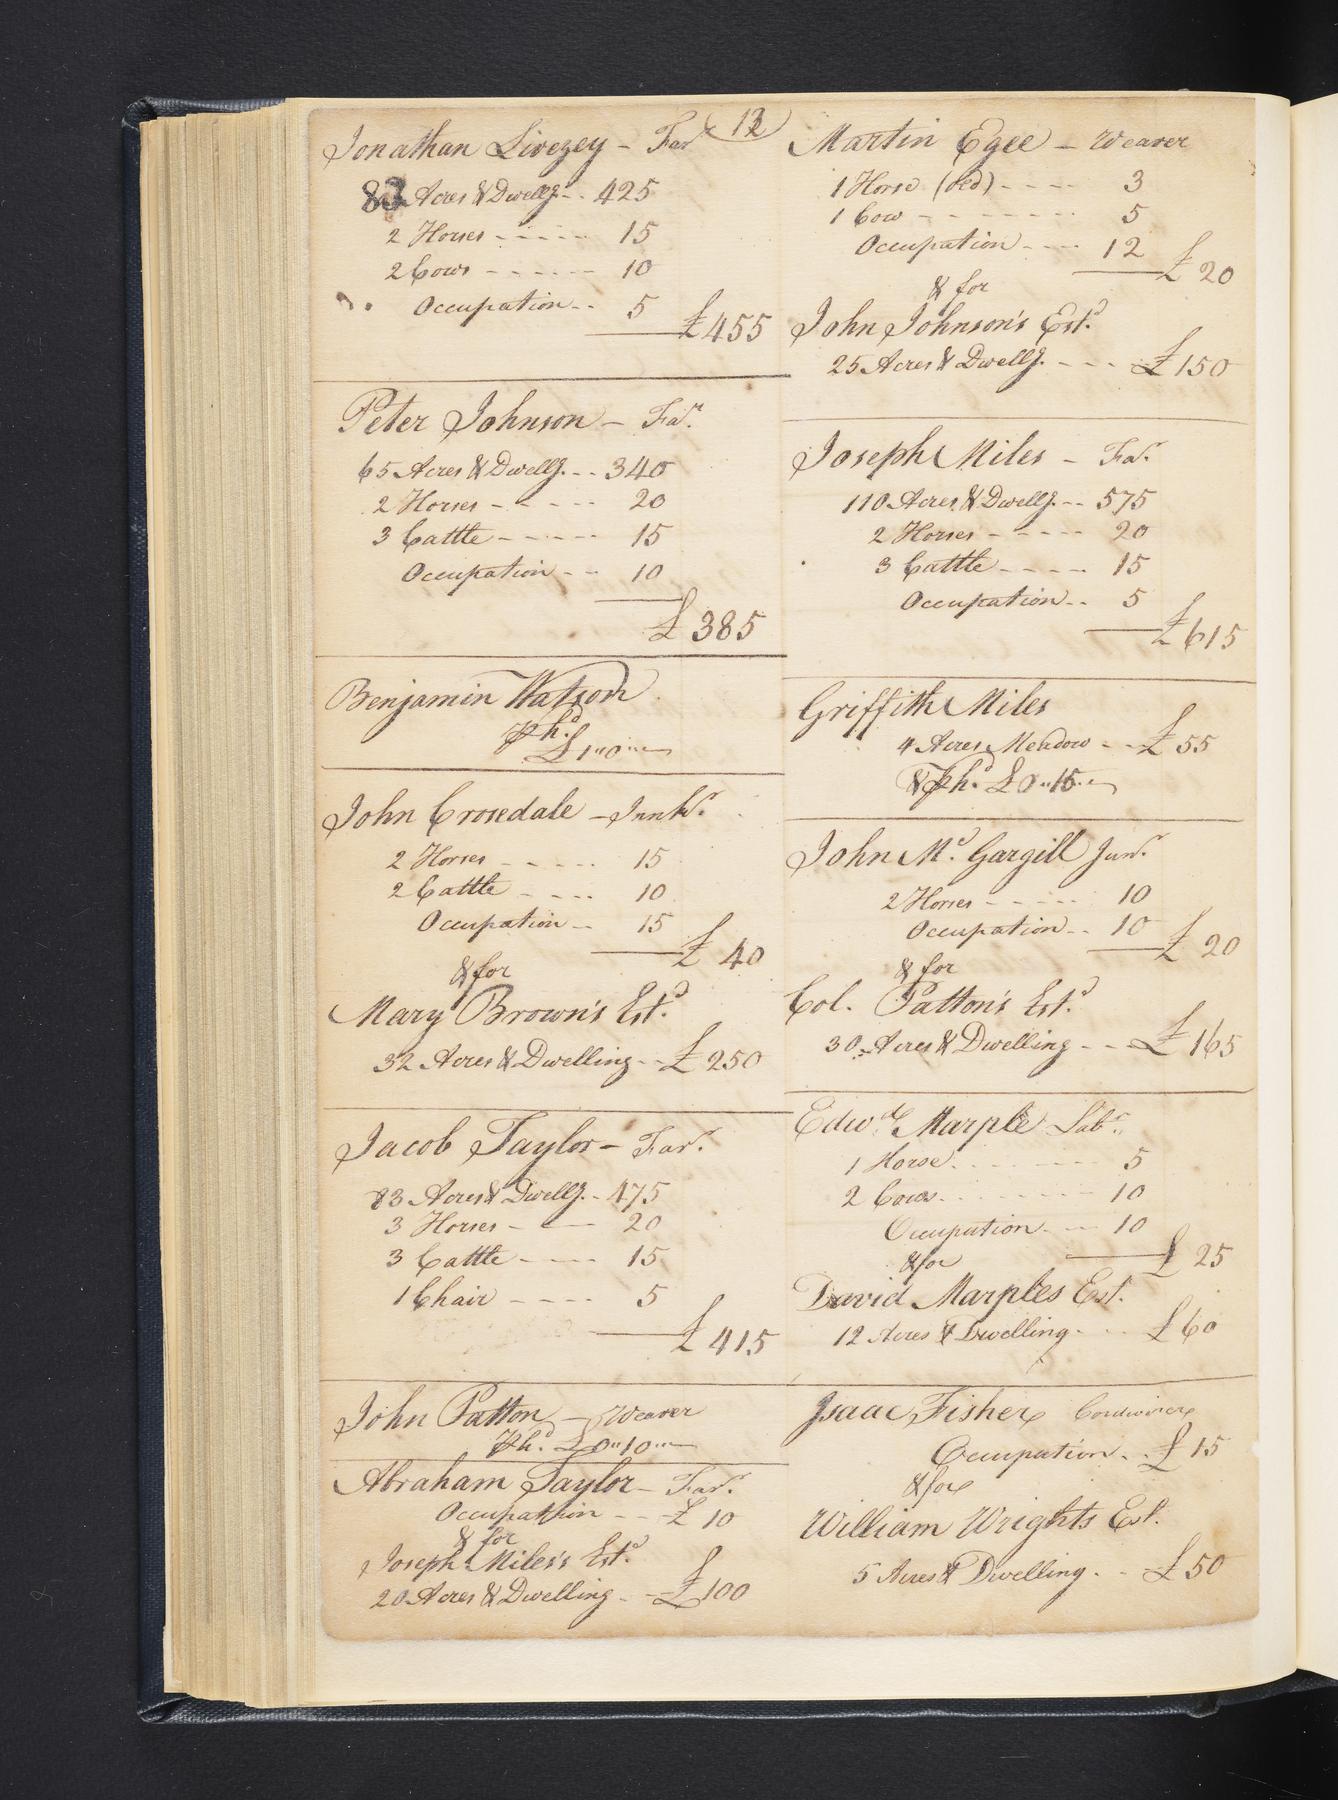 13
Jonathan Livezey – Farr
83 Acres & Dwellg. - - 425
2 Horses - - - - - 15
2 Cows - - - - - - 10
Occupation - - 5
£455
Peter Johnson – Far.
65 Acres & Dwellg. - - 340
2 Horses - - - - - 20
3 Cattle - - - - - 15
Occupation - - 10
£385
Benjamin Watson
Phd.
£1"0"—
John Crosedale – Innkr.
2 Horses - - - - - 15
2 Cattle - - - - 10
Occupation - - 15
£40
& for
Mary Brown's Estd.
32 Acres & Dwelling - - £250
Jacob Taylor – Farr.
83 Acres & Dwellg. - 475
3 Horses - - - 20
3 Cattle - - - - 15
1 Chair - - - - 5
£415
John Patton – Weaver
Phd. £0"10"—
Abraham Taylor – Farr.
Occupation - - £10
& for
Joseph Miles's Estd.
20 Acres & Dwelling - - £100
Martin Egee – Weaver
1 Horse (old) - - - - 3
1 Cow - - - - - - - 5
Occupation - - - - 12
£20
& for
John Johnson's Estd.
25 Acres & Dwellg. - - - £150
Joseph Miles – Far.
110 Acres & Dwellg. - - 575
2 Horses - - - - - 20
3 Cattle - - - - - 15
Occupation - - 5
£615
Griffith Miles
4 Acres Meadow - - £55
& Phd. £0"15"—
John Mc. Gargill Junr.
2 Horses - - - - - 10
Occupation - - 10
£20
& for
Col. Patton's Estd.
30 Acres & Dwelling - - £165
Edwd. Marple Labr.
1 Horse - - - - - 5
2 Cows - - - - - - 10
Occupation - - - 10
£25
& for
David Marples Est.
12 Acres & Dwelling - - - £60
Isaac Fisher Cordwiner
Occupation - - £15
& for
William Wrights Est.
5 Acres & Dwelling - - £50